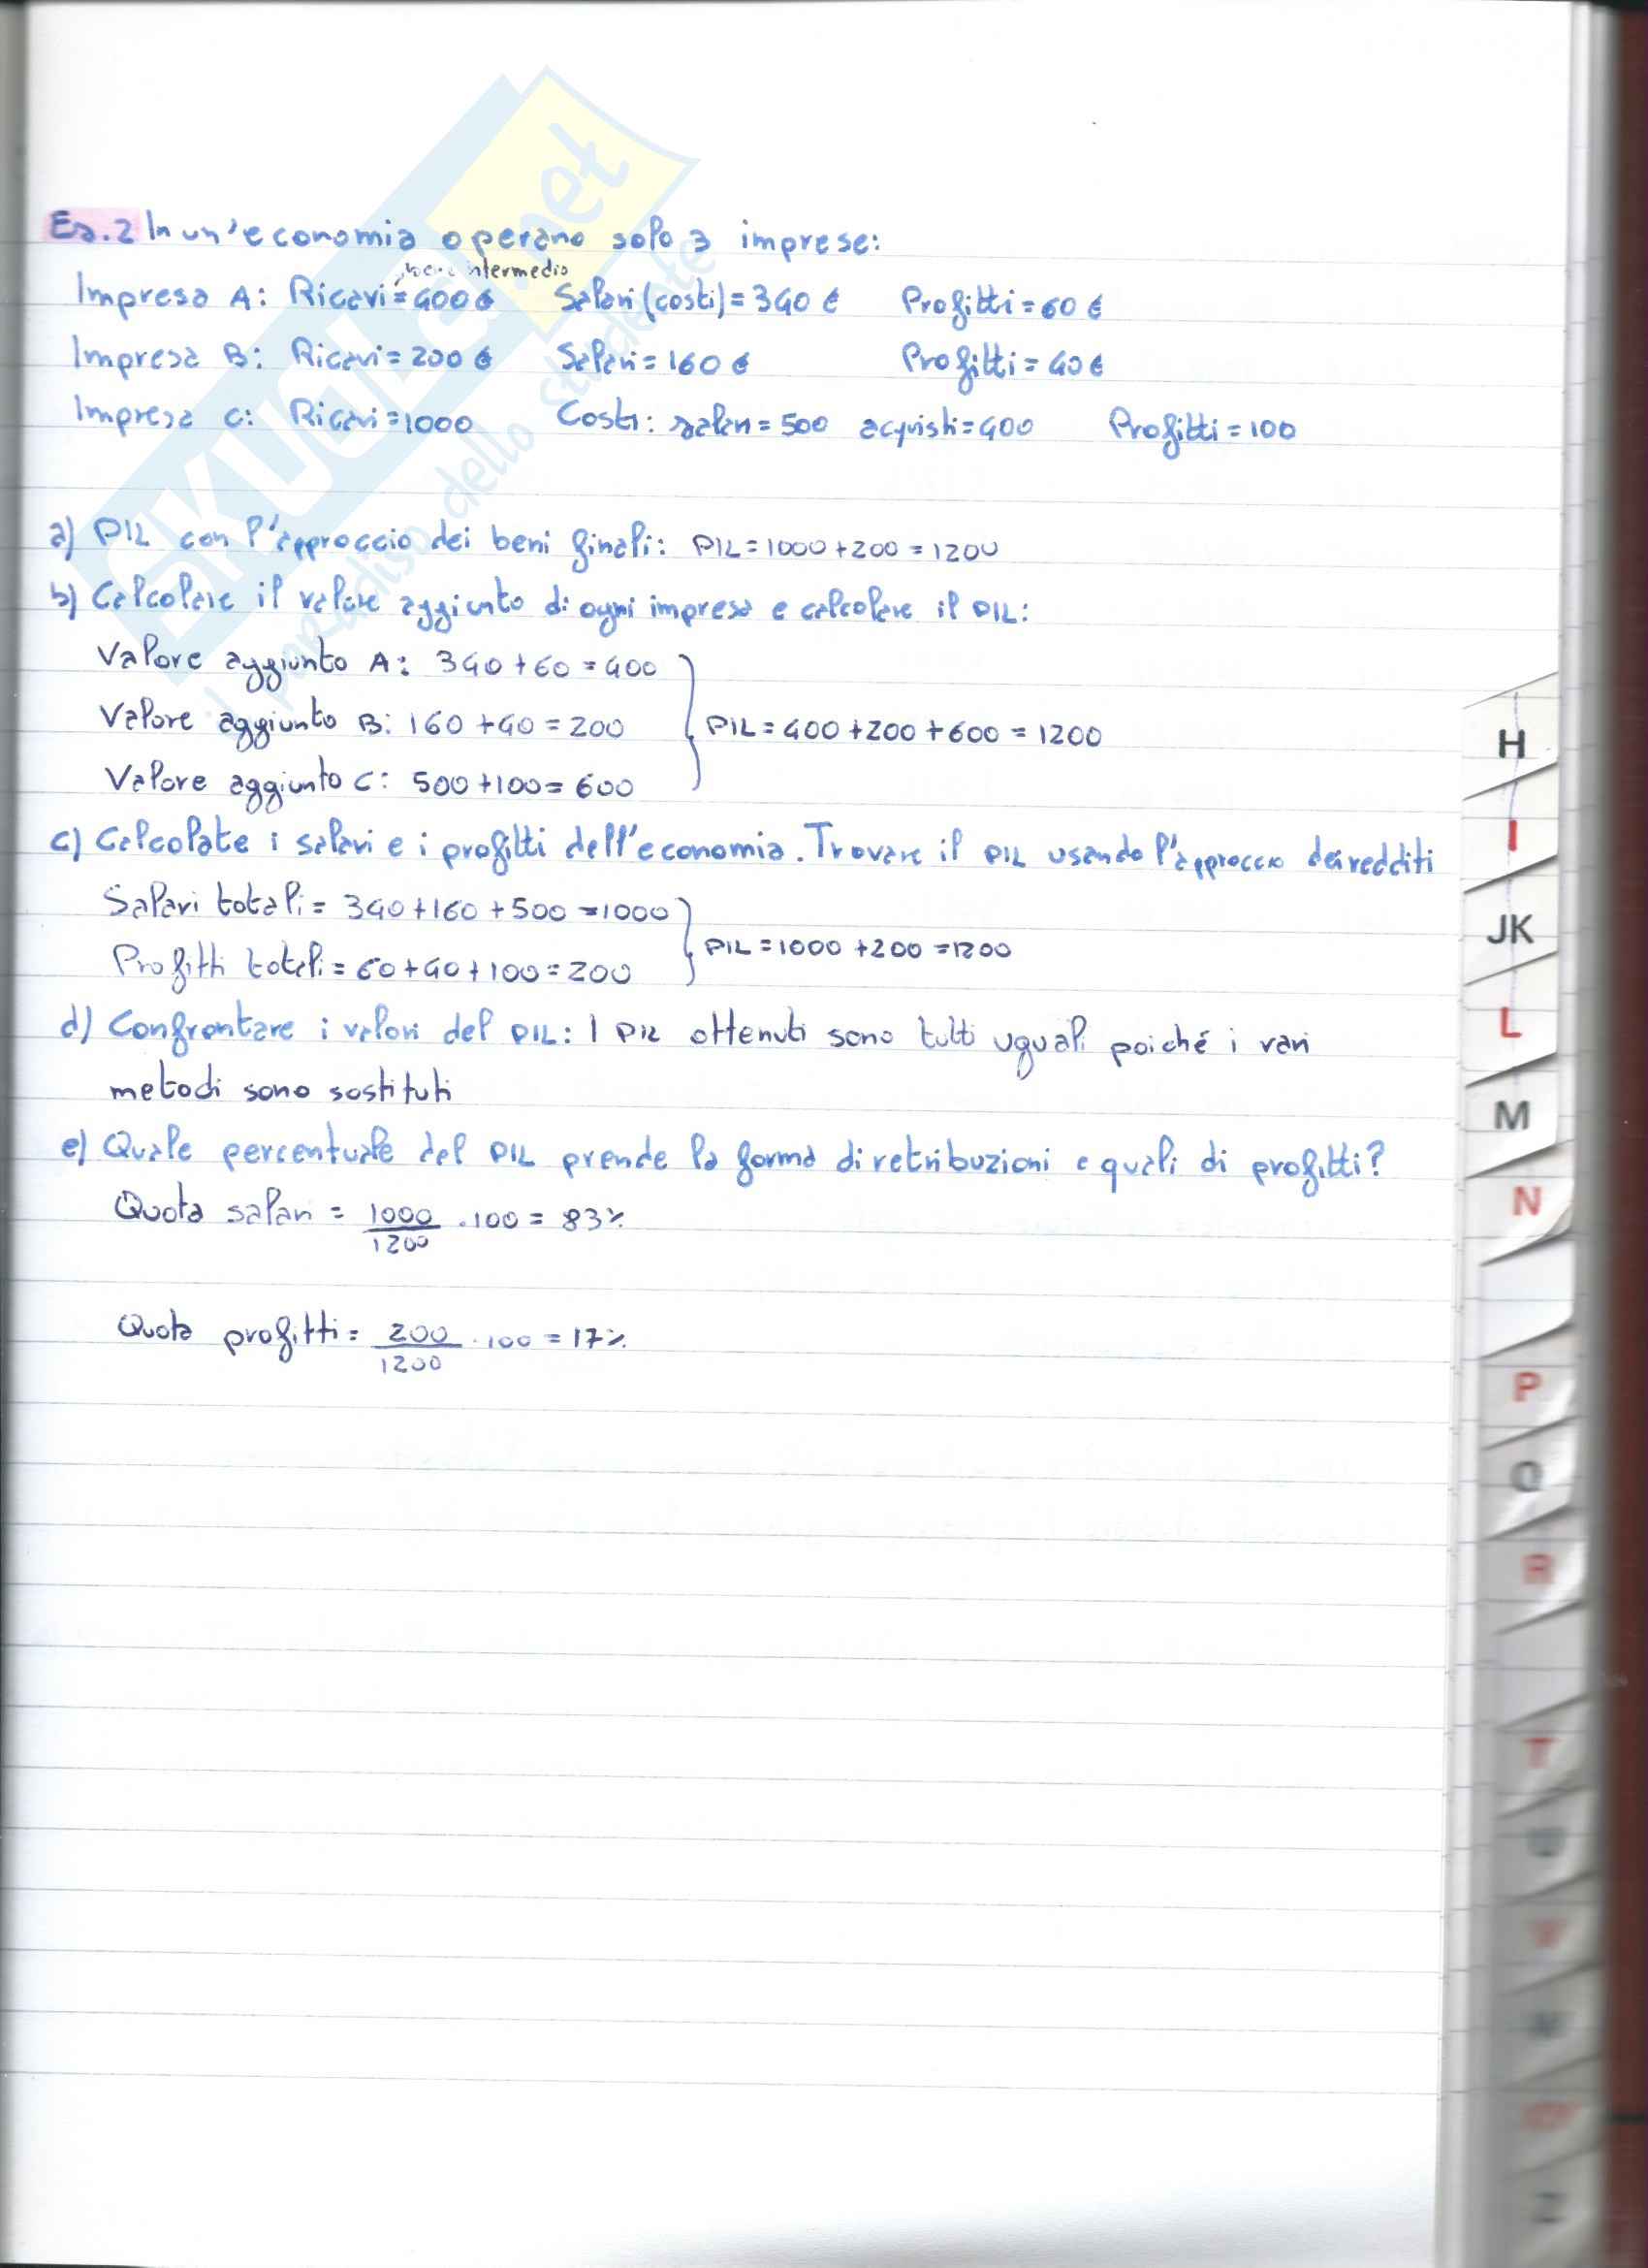 SKUOLA.net
il paradiso dello studente
Es.2 In un'economia operano solo 3 imprese:
bene intermedio
Impresa A: Ricavi=400€ Salari(costi)=340€ Profitti=60€
Impresa B: Ricavi=200€ Salari=160€ Profitti=40€
Impresa C: Ricavi=1000 Costi: salari=500 acquisti=400 Profitti=100
a) PIL con l'approccio dei beni finali: PIL=1000+200=1200
b) Calcolare il valore aggiunto di ogni impresa e calcolare il PIL:
Valore aggiunto A: 340+60=400
Valore aggiunto B: 160+40=200 PIL=400+200+600=1200
Valore aggiunto C: 500+100=600
c) Calcolate i salari e i profitti dell'economia. Trovare il PIL usando l'approccio dei redditi
Salari totali=340+160+500=1000
PIL=1000+200=1200
Profitti totali=60+40+100=200
d) Confrontare i valori del PIL: I PIL ottenuti sono tutti uguali poiché i vari
metodi sono sostituti
e) Quale percentuale del PIL prende la forma di retribuzioni e quali di profitti?
Quota salari = 1000/1200 · 100 = 83%
Quota profitti = 200/1200 · 100 = 17%
H
I
JK
L
M
N
P
Q
R
T
U
W
Z